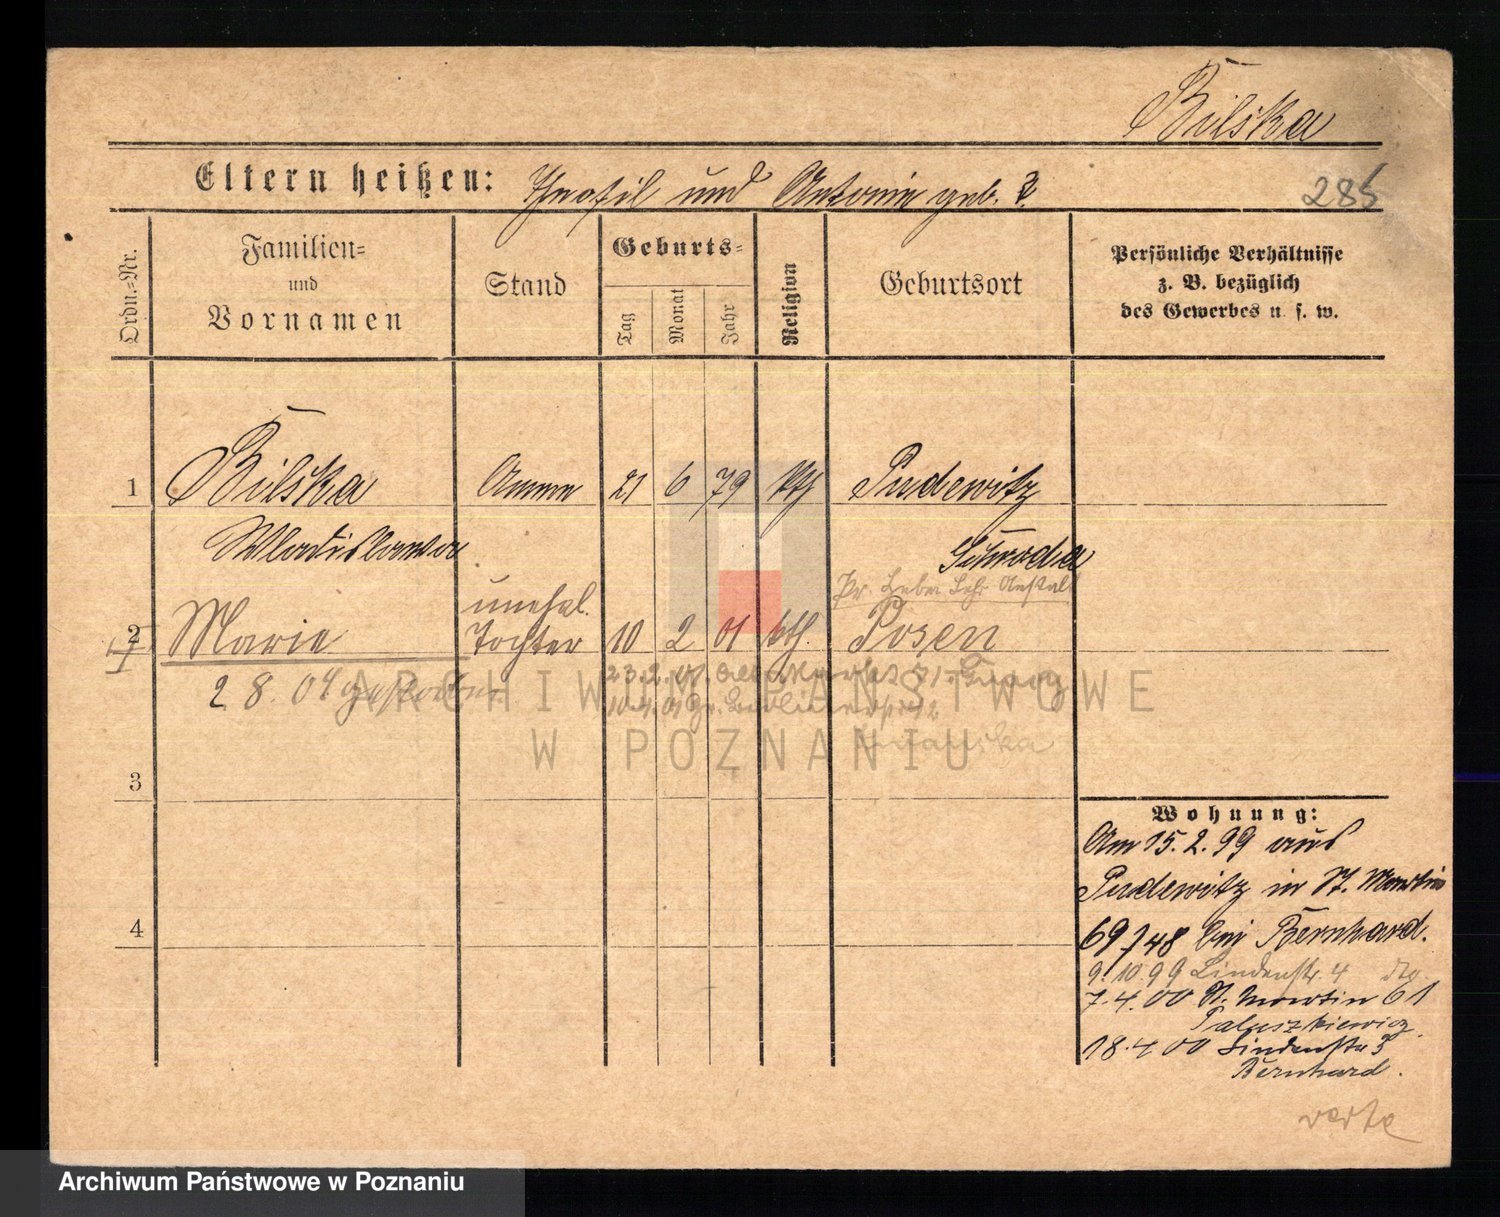 Bilska
Eltern heißen: Theofil und Antonie geb. ?
285
Ordn.-Nr.
Familien-
und
Vornamen
Stand
Geburts-
Tag
Monat
Jahr
Religion
Geburtsort
Persönliche Verhältnisse
z. B. bezüglich
des Gewerbes u. s. w.
1 Bilska Amme 21 6 79 kth Pudewitz
Wladislawa Schroda
unehel. Pr. Hebm Lehr Anstalt
2 Marie Tochter 10 2 01 kth. Posen
28. 04 gestorben
23. 2. 01.
10.4.01 Gr. Berlinerstr
3
4
Wohnung:
Am 15. 2. 99 aus
Pudewitz in St. Martin
69/48 bei Bernhard.
9. 10. 99 Lindenstr. 4 dto.
7. 4. 00 St. Martin 61
Paluszkiewicz
18. 4 00 Lindenstr 3
Bernhard.
verte
ARCHIWUM PAŃSTWOWE
W POZNANIU
Archiwum Państwowe w Poznaniu